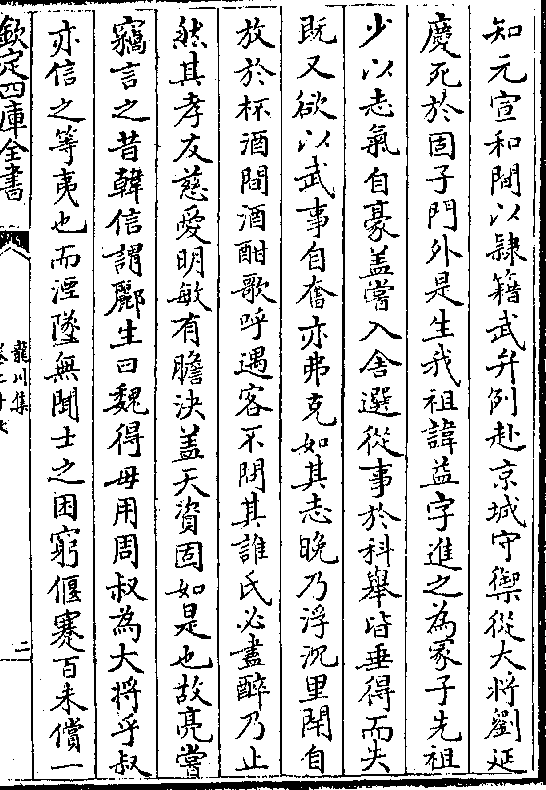 知元宣和間以隸籍武弁例赴京城守禦從大將劉延
慶死於固子門外是生我祖諱益字進之為冢子先祖
少以志氣自豪盖嘗入舍選從事於科舉皆垂得而失
既又欲以武事自奮亦弗克如其志晚乃浮沉里閈自
放於杯酒間酒酣歌呼遇客不問其誰氏必盡醉乃止
然其孝友慈愛明敏有膽決盖天資固如是也故亮嘗
竊言之昔韓信謂酈生曰魏得毋用周叔為大將乎叔
亦信之等夷也而湮墜無聞士之困窮偃蹇百未償一
欽定四庫全書
龍川集
卷二十七
二